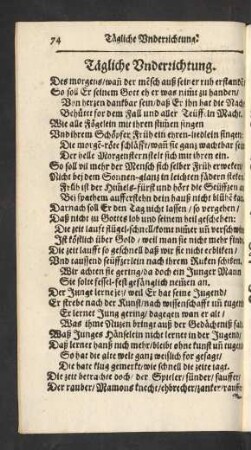 74 Tägliche Vnderrichtung.
Tägliche Vnderrichtung.
Des morgens/wañ der mẽsch auß seiner ruh erstanden
So soll Er seinem Gott eh er was nimt zu handen/
Von hertzen danckbar sein/daß Er ihn hat die Nacht
Behütet for dem Fall und aller Teüff: n Macht.
Wie alle Föglein mit ihren stim̃en singen
Vnd ihrem Schöpfer Früh ein ehren-liedlein singen
Die morgẽ-röt schläfft/wañ sie gantz wachtbar
Der helle Morgenstern stelt sich mit ihren ein.
So soll vil mehr der Mensch sich selber Früh erwecken
Nicht bey dem Sonnen-glantz in leichten fädern stecken
Früh ist der Him̃els-fürst und hört die Seüffzen
Bei spathem aufferstehen dein hauß nicht blühẽ kan
Darnach soll Er den Tag nicht lassen/so vergehen/
Daß nicht in Gottes lob und seinem heil geschehen:
Die zeit laufft flügel-schnell/komt nim̃er uñ verschwindt
Ist köstlich über Gold/weil man sie nicht mehr findt
Die zeit laufft so geschwind daß wir sie nicht erbliken/
Vnd taussend seüffzerlein nach ihrem Ruken schriken.
Wir achten sie gering/da doch ein Junger Mann
Sie solte fessel-fest gefänglich nemen an.
Der Junge lerne jetz/weil Er hat seine Jugend/
Er strebe nach der Kunst/nach wissenschafft uñ tugend
Er lernet Jung gering/dagegen wan er alt/
Was ihme Nutzen bringt auß der Gedächtnüß
Waß Junges Hänselein nicht lernet in der Jugend/
Daß lernet hanß nich mehr/bleibt ohne kunst uñ tugend
So hat die alte welt gantz weißlich for gesagt/
Die hatt klug gemerkt/wie schnell die zeite jagt.
Die zeit betrachte doch/der Spieler/sünder/sauffer/
Der rauber/Mamons knecht/ehbrecher/zanker/rauffer